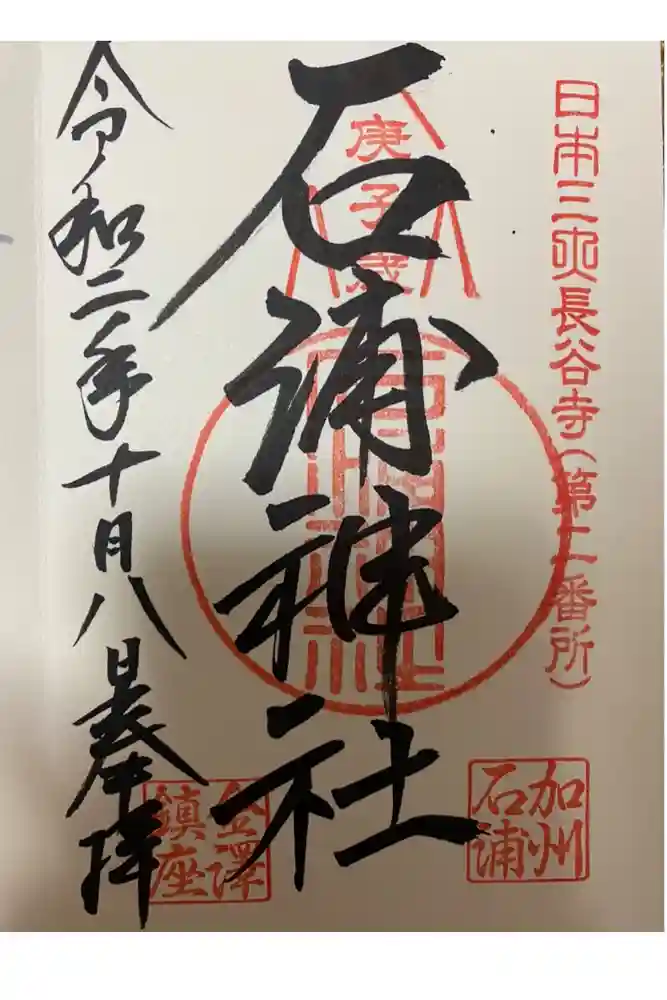 日本三大長谷寺(第二番所)
加州
石浦
庚子歳
石浦神社
石浦神社
金澤
鎮座
令和二年十月八日奉拝